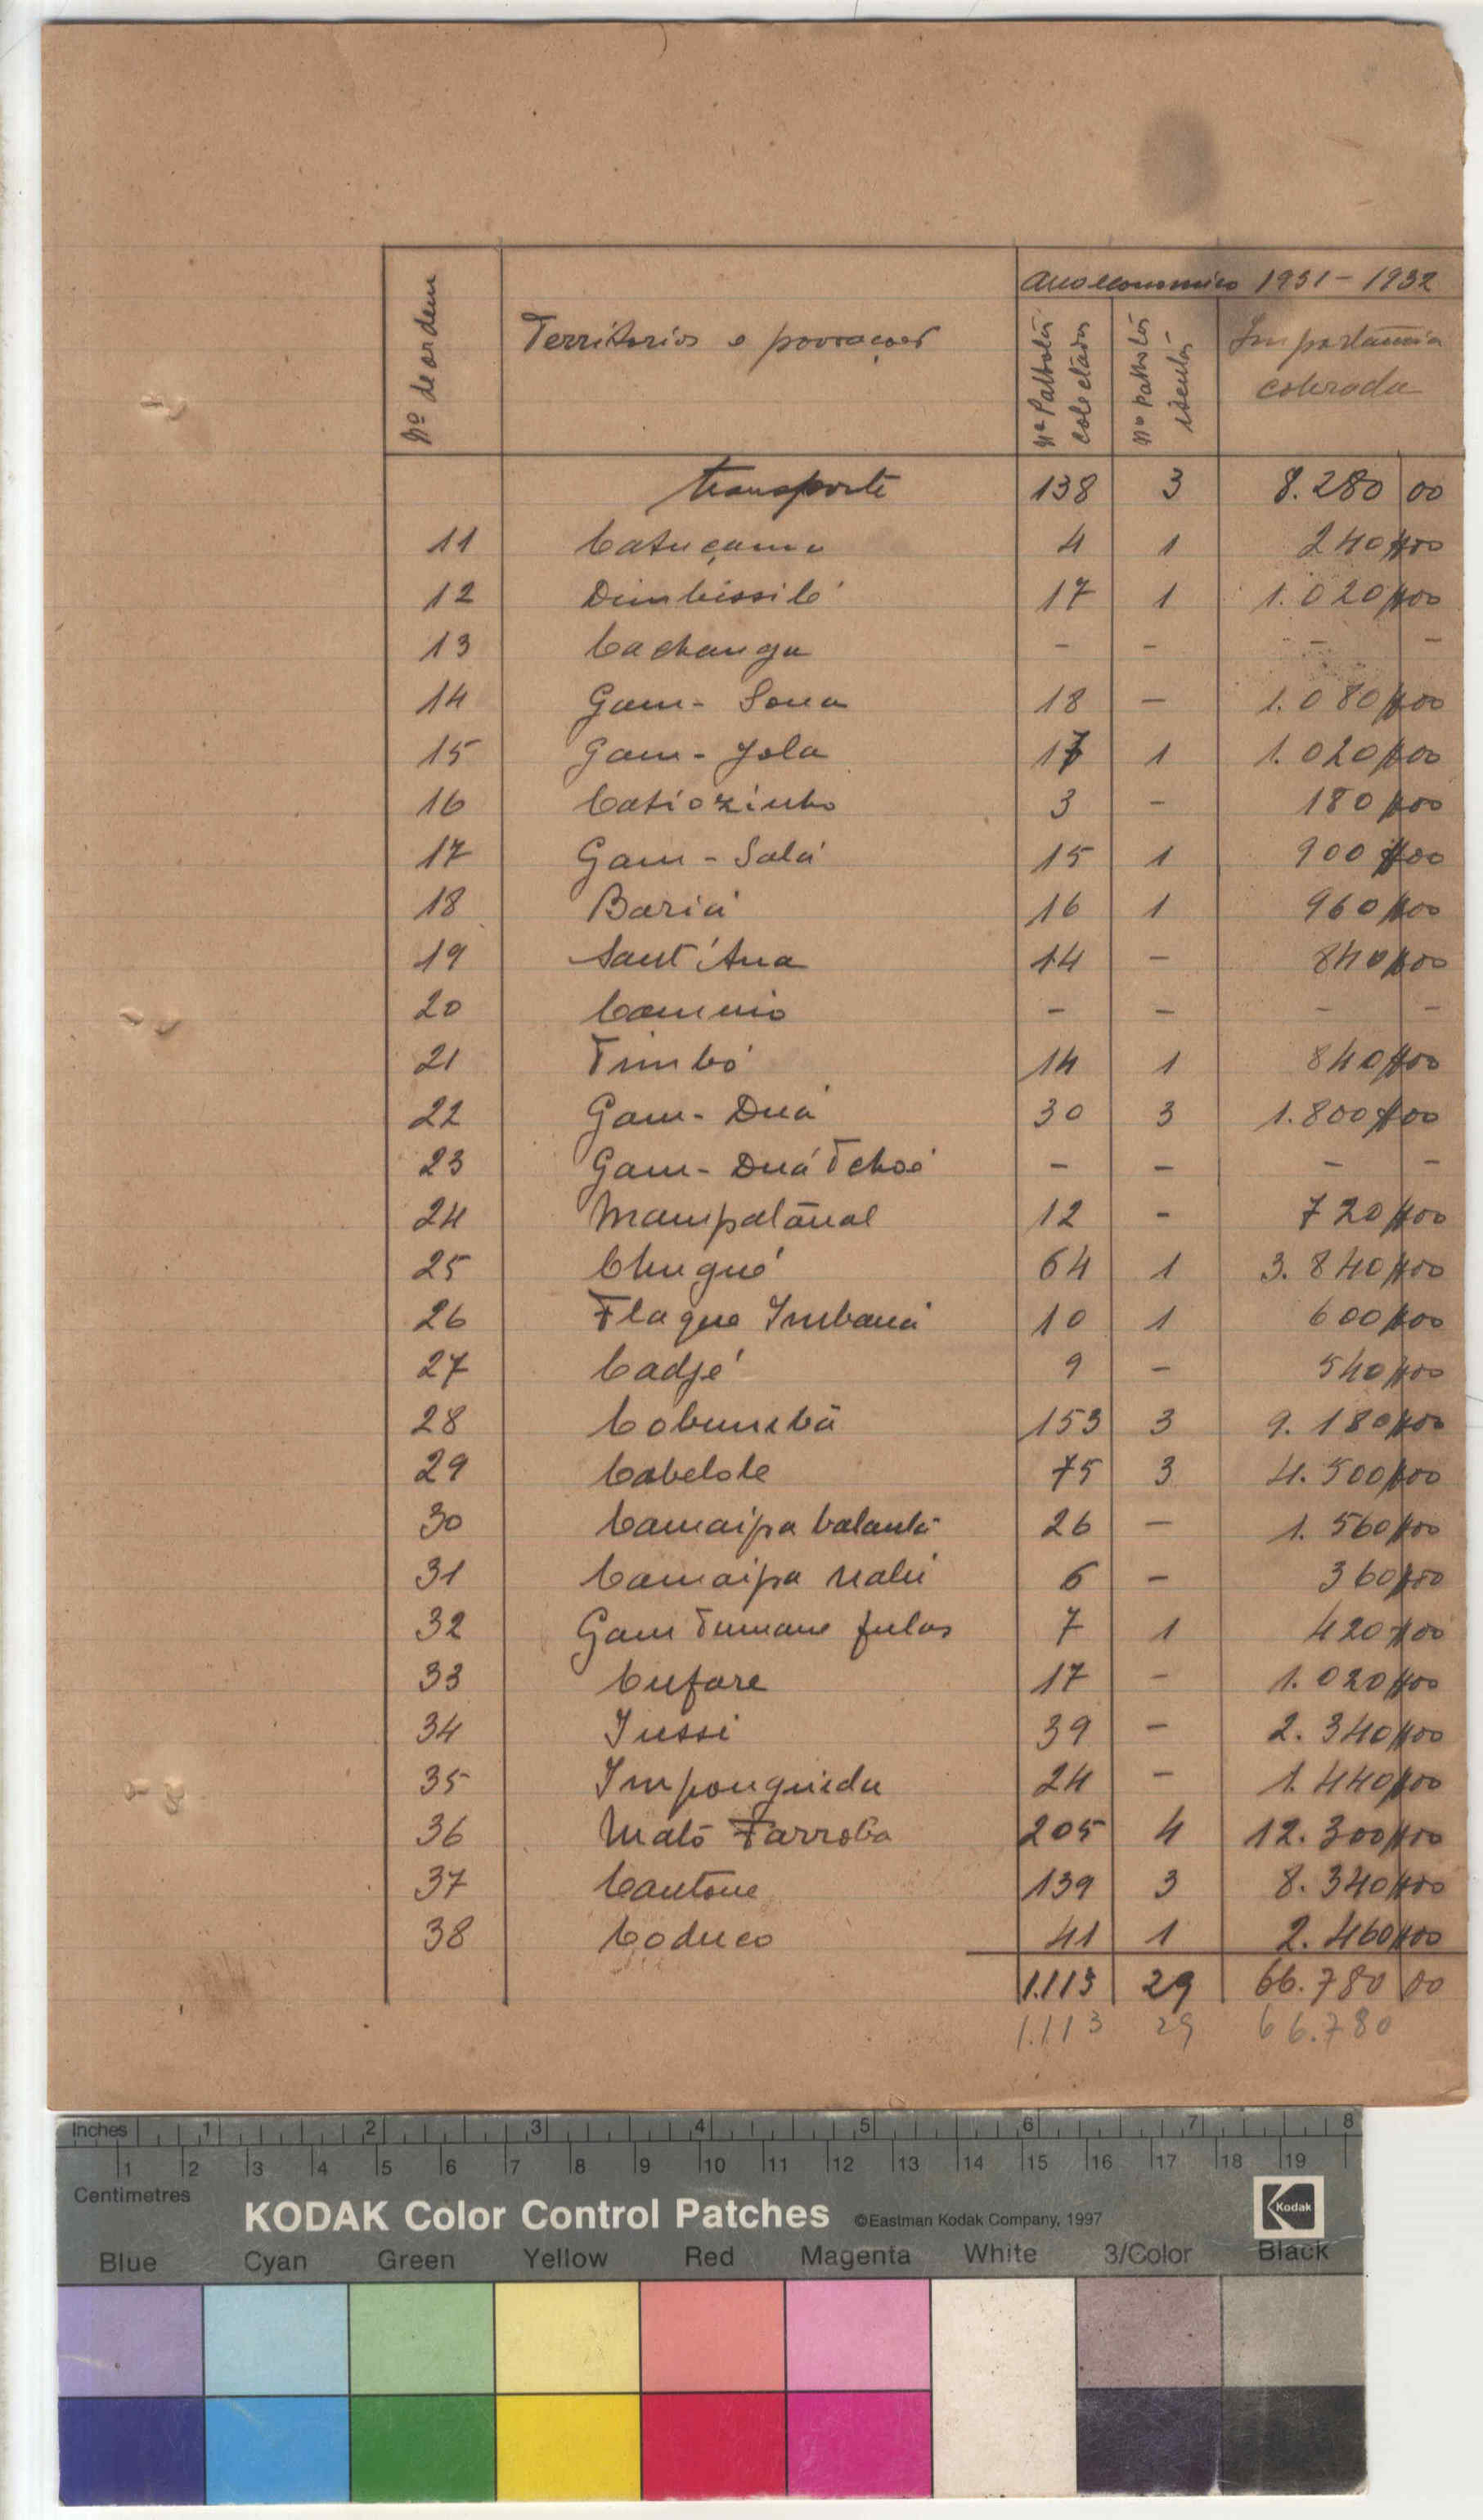 Nº de ordem
Territorios e povoações
Ano economico 1931-1932
Nº Palhotas colectadas
Nº palhotas isentas
Importancia cobrada
Transporte 138 3 8.280 00
11 Catuçama 4 1 240$00
12 Dimbissilé 17 1 1.020$00
13 Cachanga - - - -
14 Gam-Sona 18 - 1.080$00
15 Gam-Jola 17 1 1.020$00
16 Catiozinho 3 - 180$00
17 Gam-Salá 15 1 900$00
18 Bariá 16 1 960$00
19 Sant'Ana 14 - 840$00
20 - - - -
21 Timbó 14 1 840$00
22 Gam-Duá 30 3 1.800$00
23 Gam-Duá Tchoé - - - -
24 Mampatánal 12 - 720$00
25 Chugué 64 1 3.840$00
26 Flaque Inbaná 10 1 600$00
27 Cadjé 9 - 540$00
28 153 3 9.180$00
29 Cabelole 75 3 4.500$00
30 Camaipa balanta 26 - 1.560$00
31 Camaipa nalú 6 - 360$00
32 Gam Tumane fulas 7 1 420$00
33 Cufare 17 - 1.020$00
34 Iussi 39 - 2.340$00
35 Imponguida 24 - 1.440$00
36 Mató Farroba 205 4 12.300$00
37 Cantone 139 3 8.340$00
38 Coduco 41 1 2.460$00
1.113 29 66.780 00
1.113 29 66.780
Inches 1 2 3 4 5 6 7 8
1 2 3 4 5 6 7 8 9 10 11 12 13 14 15 16 17 18 19
Centimetres
KODAK Color Control Patches ©Eastman Kodak Company, 1997 Kodak
Blue Cyan Green Yellow Red Magenta White 3/Color Black